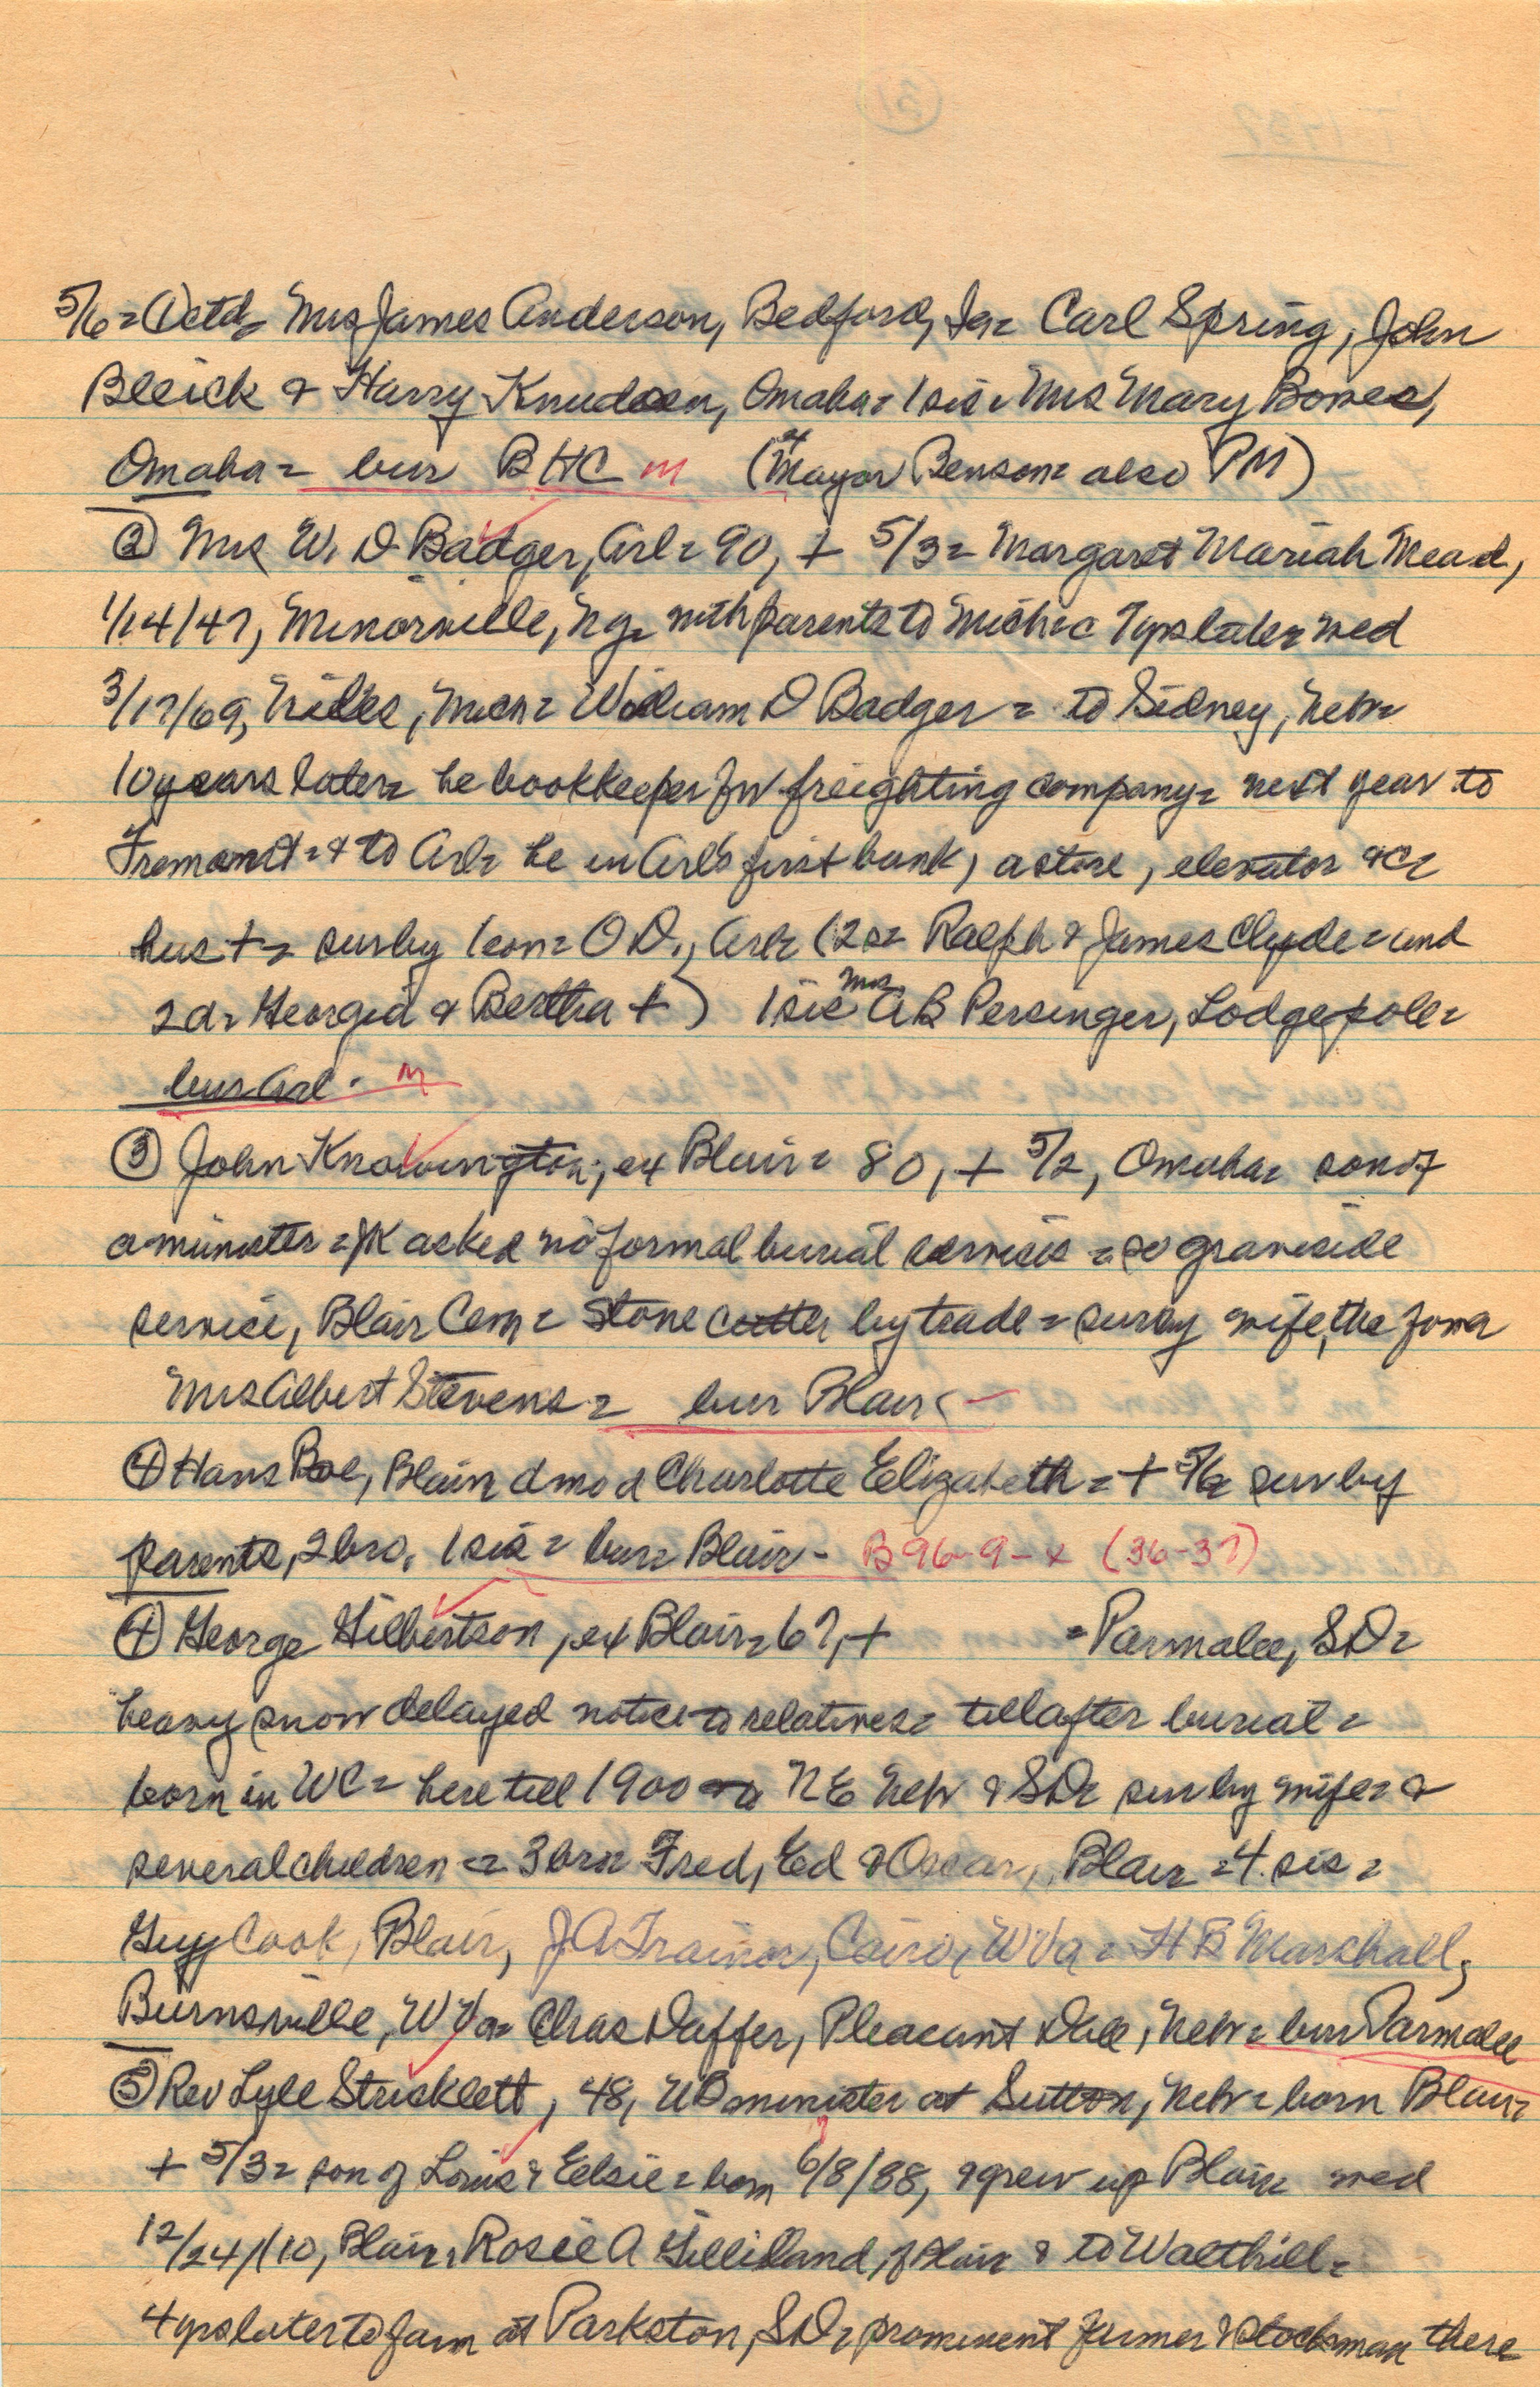 5/6 = ① ctd = Mrs James Anderson, Bedford, Ia = Carl Spring, John
Bleick & Harry Knudsen, Omaha = 1 sis = Mrs Mary Bones,
Omaha = bur BHC m (ex Mayor Benson = also PM)
② Mrs W. D Badger, Arl = 90, + 5/3 = Margaret Mariah Mead,
1/14/47, Minorville, Ny = with parents to Mich = c 7 yrs later = wed
3/17/69, Niles, Mich = William D Badger = to Sidney, Nebr =
10 years later = he bookkeeper for freighting company = next year to
Fremont = & to Arl = he in Arl's first bank, a store, elevator &c =
hus + = surv by 1 son = O D., Arl = (2 s = Ralph & James Clyde = and
2 d = Georgia & Bertha +) 1 sis Mrs A B Persinger, Lodgepole =
bur Arl - m
③ John Knowington, ex Blair = 80, + 5/2, Omaha = son of
a minister = JK asked no formal burial services = so graveside
service, Blair Cem = Stone cutter by trade = surv by wife, the former
Mrs Albert Stevens = bur Blair -
④ Hans Roe, Blair d mo d Charlotte Elizabeth = + 5/6 = surv by
parents, 2 bro, 1 sis = bur Blair - B 96-9-x (36-37)
④ George Gilbertson, ex Blair = 67, + = Parmalee, SD =
heavy snow delayed notice to relatives = till after burial =
born in WC = here till 1900 = to NE Nebr & SD = surv by wife = &
several children = 3 bro = Fred, Ed & Oscar, Blair = 4 sis =
Guy Cook, Blair, J A Trainor, Cairo, W Va = H B Marschall,
Burnsville, W Va = Chas Daffer, Pleasant Dale, Nebr = bur Parmalee
⑤ Rev Lyle Stricklett, 48, UB minister at Sutton, Nebr = born Blair =
+ 5/3 = son of Louis & Elsie = born 6/8/88, & grew up Blair = wed
12/24/10, Blair, Rosie A Gilliland, of Blair & to Walthill =
4 yrs later to farm at Parkston, SD = prominent farmer & stockman there